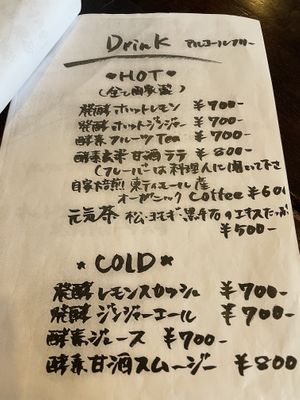 Drink アルコールフリー
♥HOT♥
(全て自家製)
発酵ホットレモン ¥700-
発酵ホットジンジャー ¥700-
酵素フルーツTea ¥700-
酵素玄米甘酒ラテ ¥800-
(フレーバーは料理人に聞いて下さ
自家焙煎!! 東ティモール産
オーガニック Coffee ¥600
元気茶 松・よもぎ・黒千石のエキスたっぷ
¥500-
*COLD*
発酵レモンスカッシュ ¥700-
発酵ジンジャーエール ¥700-
酵素ジュース ¥700-
酵素甘酒スムージー ¥800